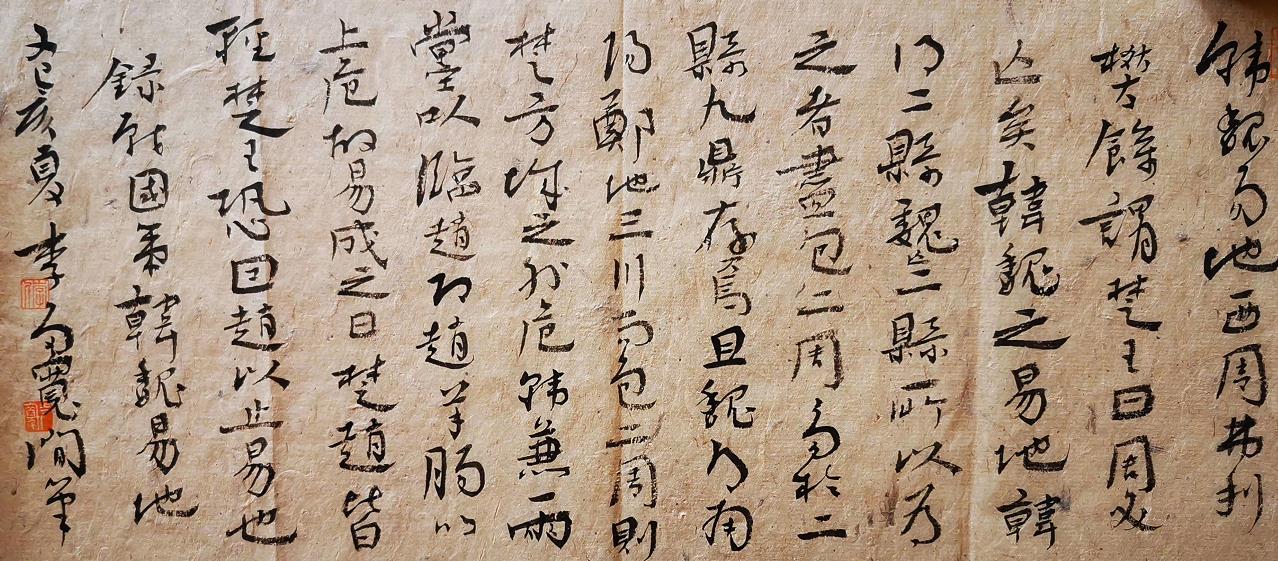 韩魏易地西周弗利
樊餘謂楚王曰周必
亡矣韓魏之易地韓
得二縣魏亡二縣所以为
之者盡包二周多於二
縣九鼎存焉且魏有南
阳鄭地三川而包二周則
楚方城之外危韩兼兩
上黨以臨趙即趙羊腸以
上危故易成之日楚趙皆
輕楚王恐因趙以止易也
錄戰國策韓魏易地
己亥夏李